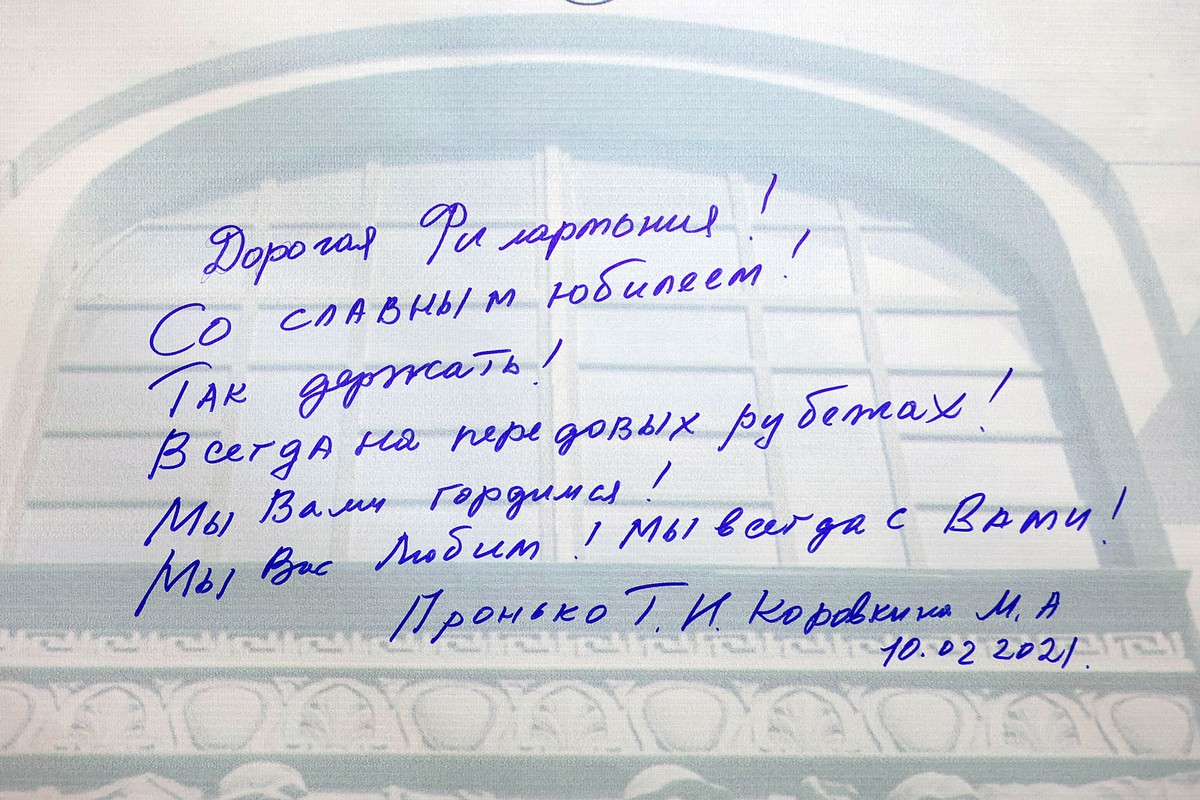 Дорогая Филармония!
Со славным юбилеем!
Так держать!
Всегда на передовых рубежах!
Мы Вами гордимся!
Мы Вас Любим! Мы всегда с Вами!
Пронько Т.И. Коровкина М.А
10.02 2021.